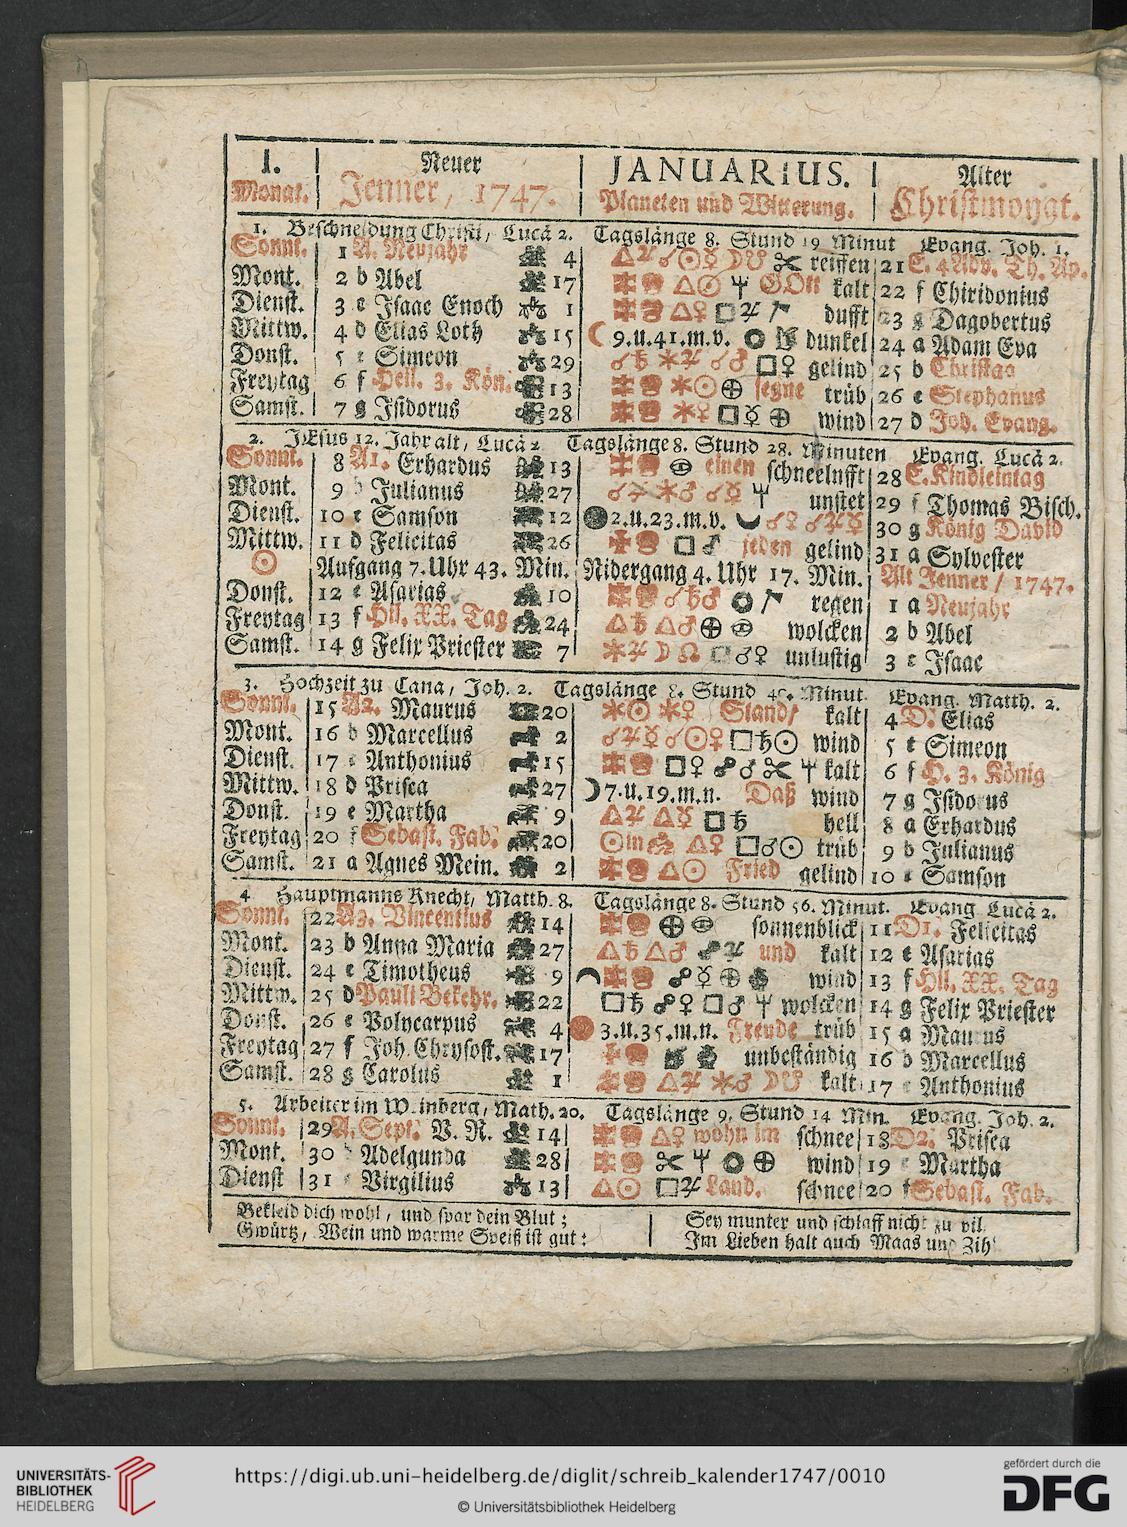 I. Neuer JANUARIUS. Alter
Monat. Jenner, 1747. Planeten und Witterung. Christmonat.
1. Beschneidung Christi, Lucä 2. Tagslänge 8. Stund 19 Minut Evang. Joh. 1.
Sonnt. 1 A. Neujahr 4 △♃☌☉☿☽☋ reissen 21 E. 4 Adv. Th. Ap.
Mont. 2 b Abel 17 △☉ GOtt kalt 22 f Chiridonius
Dienst. 3 c Isaac Enoch 1 △♀ □♃ dufft 23 g Dagobertus
Mittw. 4 d Elias Loth 15 ☾ 9.u.41.m.v. dunkel 24 a Adam Eva
Donst. 5 e Simeon 29 ☌♄ ✶♃ ☌♂ □♀ gelind 25 b Christtag
Freytag 6 f Heil. 3. Kön. 13 ✶☉ ⊕ segne trüb 26 c Stephanus
Samst. 7 g Isidorus 28 ✶♀ □☿ ⊕ wind 27 d Joh. Evang.
2. JEsus 12. Jahr alt, Lucä 2 Tagslänge 8. Stund 28. Minuten Evang. Lucä 2.
Sonnt. 8 A1. Erhardus 13 einen schneelufft 28 E. Kindleintag
Mont. 9 b Julianus 27 ☌♃ ✶♂ ☌☿ unstet 29 f Thomas Bisch.
Dienst. 10 c Samson 12 2.u.23.m.v. ☌♀ ☌♃☿ 30 g König David
Mittw. 11 d Felicitas 26 □♂ jeden gelind 31 a Sylvester
☉ Aufgang 7. Uhr 43. Min. Nidergang 4. Uhr 17. Min. Alt Jenner / 1747.
Donst. 12 e Asarias 10 ☌♄♂ regen 1 a Neujahr
Freytag 13 f Hil. XX. Tag 24 △♄ △♂ ⊕ wolcken 2 b Abel
Samst. 14 g Felix Priester 7 ✶♃ ☽☊ □♂♀ unlustig 3 c Isaac
3. Hochzeit zu Cana, Joh. 2. Tagslänge 8. Stund Minut. Evang. Matth. 2.
Sonnt. 15 A2. Maurus 20 ✶☉ ✶♀ Stand/ kalt 4 D. Elias
Mont. 16 b Marcellus 2 ☌♃☿ ☌☉♀ □♄☉ wind 5 e Simeon
Dienst. 17 c Anthonius 15 □♀ ☍♂ kalt 6 f H. 3. König
Mittw. 18 d Prisca 27 ☽ 7.u.19.m.n. Daß wind 7 g Isidorus
Donst. 19 e Martha 9 △♃ △☿ □♄ hell 8 a Erhardus
Freytag 20 f Sebast. Fab. 20 ☉in △♀ □♂☉ trüb 9 b Julianus
Samst. 21 a Agnes Mein. 2 △☉ Fried gelind 10 c Samson
4 Hauptmanns Knecht, Matth. 8. Tagslänge 8. Stund 56. Minut. Evang. Lucä 2.
Sonnt. 22 A3. Vincentius 14 ⊕ sonnenblick 11 D1. Felicitas
Mont. 23 b Anna Maria 27 △♄ △♂ ☍♃ und kalt 12 e Asarias
Dienst. 24 c Timotheus 9 ☍☿ ⊕ wind 13 f Hil. XX. Tag
Mittw. 25 d Pauli Bekehr. 22 □♄ ☍♀ □♂ wolcken 14 g Felix Priester
Donst. 26 e Polycarpus 4 3.u.35.m.n. Freude trüb 15 a Maurus
Freytag 27 f Joh. Chrysost. 17 unbeständig 16 b Marcellus
Samst. 28 g Carolus 1 △♃ ✶♂ ☽☋ kalt 17 c Anthonius
5. Arbeiter im Weinberg, Math. 20. Tagslänge 9. Stund 14 Min. Evang. Joh. 2.
Sonnt. 29 A. Sept. V. R. 14 △♀ wohn im schnee 18 D2. Prisca
Mont. 30 b Adelgunda 28 ⊕ wind 19 e Martha
Dienst 31 c Virgilius 13 △☉ □♃ Land. schnee 20 f Sebast. Fab.
Bekleid dich wohl, und spar dein Blut;
Gwürtz, Wein und warme Speiß ist gut:
Sey munter und schlaff nicht zu vil
Im Lieben halt auch Maas und Zihl
UNIVERSITÄTS-
BIBLIOTHEK
HEIDELBERG
https://digi.ub.uni-heidelberg.de/diglit/schreib_kalender1747/0010
© Universitätsbibliothek Heidelberg
gefördert durch die
DFG